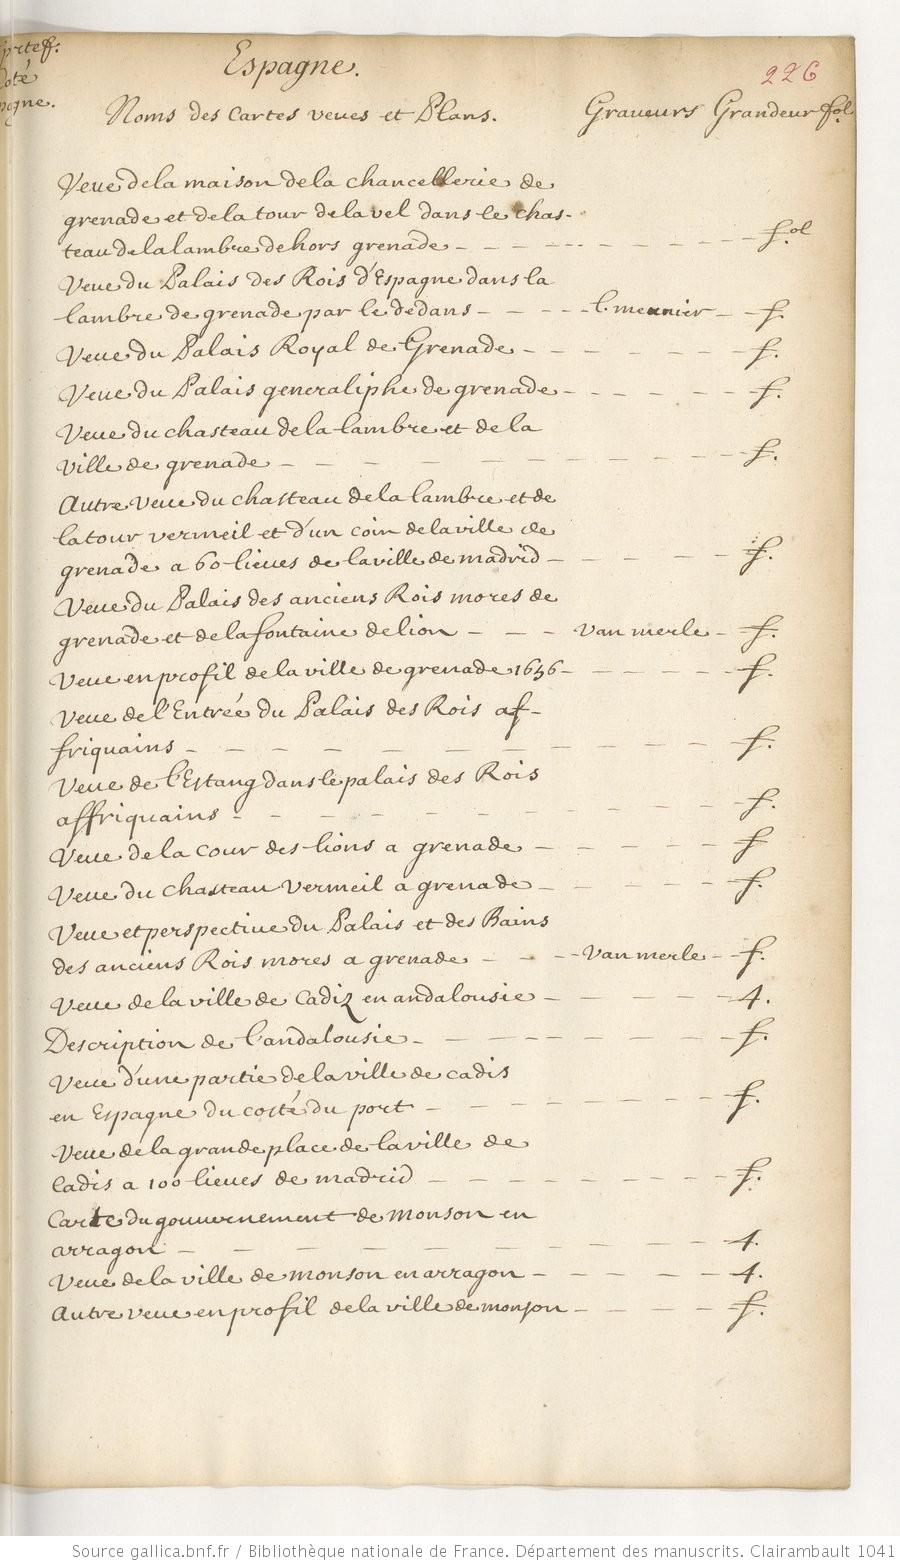 Espagne.
226
Noms des Cartes veues et Plans. Graveurs Grandeur fol
Veue de la maison de la chancellerie de
grenade et de la tour de la vel dans le chas-
teau de lalambre dehors grenade - - - - - - - - - - fol
Veue du Palais des Rois d'Espagne dans la
lambre de grenade par le dedans - - - - - L. meunier - - f.
Veue du Palais Royal de Grenade - - - - - - f.
Veue du Palais generaliphe de grenade - - - - - - f.
Veue du chasteau de la lambre et de la
ville de grenade - - - - - - - - - - f.
Autre veue du chasteau de la lambre et de
la tour vermeil et d'un coin de la ville de
grenade a 60 lieues de la ville de madrid - - - - - f.
Veue du Palais des anciens Rois mores de
grenade et de la fontaine de lion - - - van merle - f.
Veue en profil de la ville de grenade 1656 - - - - - - f.
Veue de l'Entrée du Palais des Rois af-
friquains - - - - - - - - - - f.
Veue de l'Estang dans le palais des Rois
affriquains - - - - - - - - - - f.
Veue de la cour des lions a grenade - - - - - f
Veue du chasteau vermeil a grenade - - - - - f.
Veue et perspective du Palais et des Bains
des anciens Rois mores a grenade - - - - van merle - f.
Veue de la ville de Cadiz en andalousie - - - - - 4.
Description de l'andalousie - - - - - - - - - f.
Veue d'une partie de la ville de cadis
en Espagne du costé du port - - - - - - - - f.
Veue de la grande place de la ville de
Cadis a 100 lieues de madrid - - - - - - - - f.
Carte du gouvernement de monson en
arragon - - - - - - - - - - 4.
Veue de la ville de monson en arragon - - - - - - 4.
Autre veue en profil de la ville de monson - - - - - f.
Source gallica.bnf.fr / Bibliothèque nationale de France. Département des manuscrits. Clairambault 1041